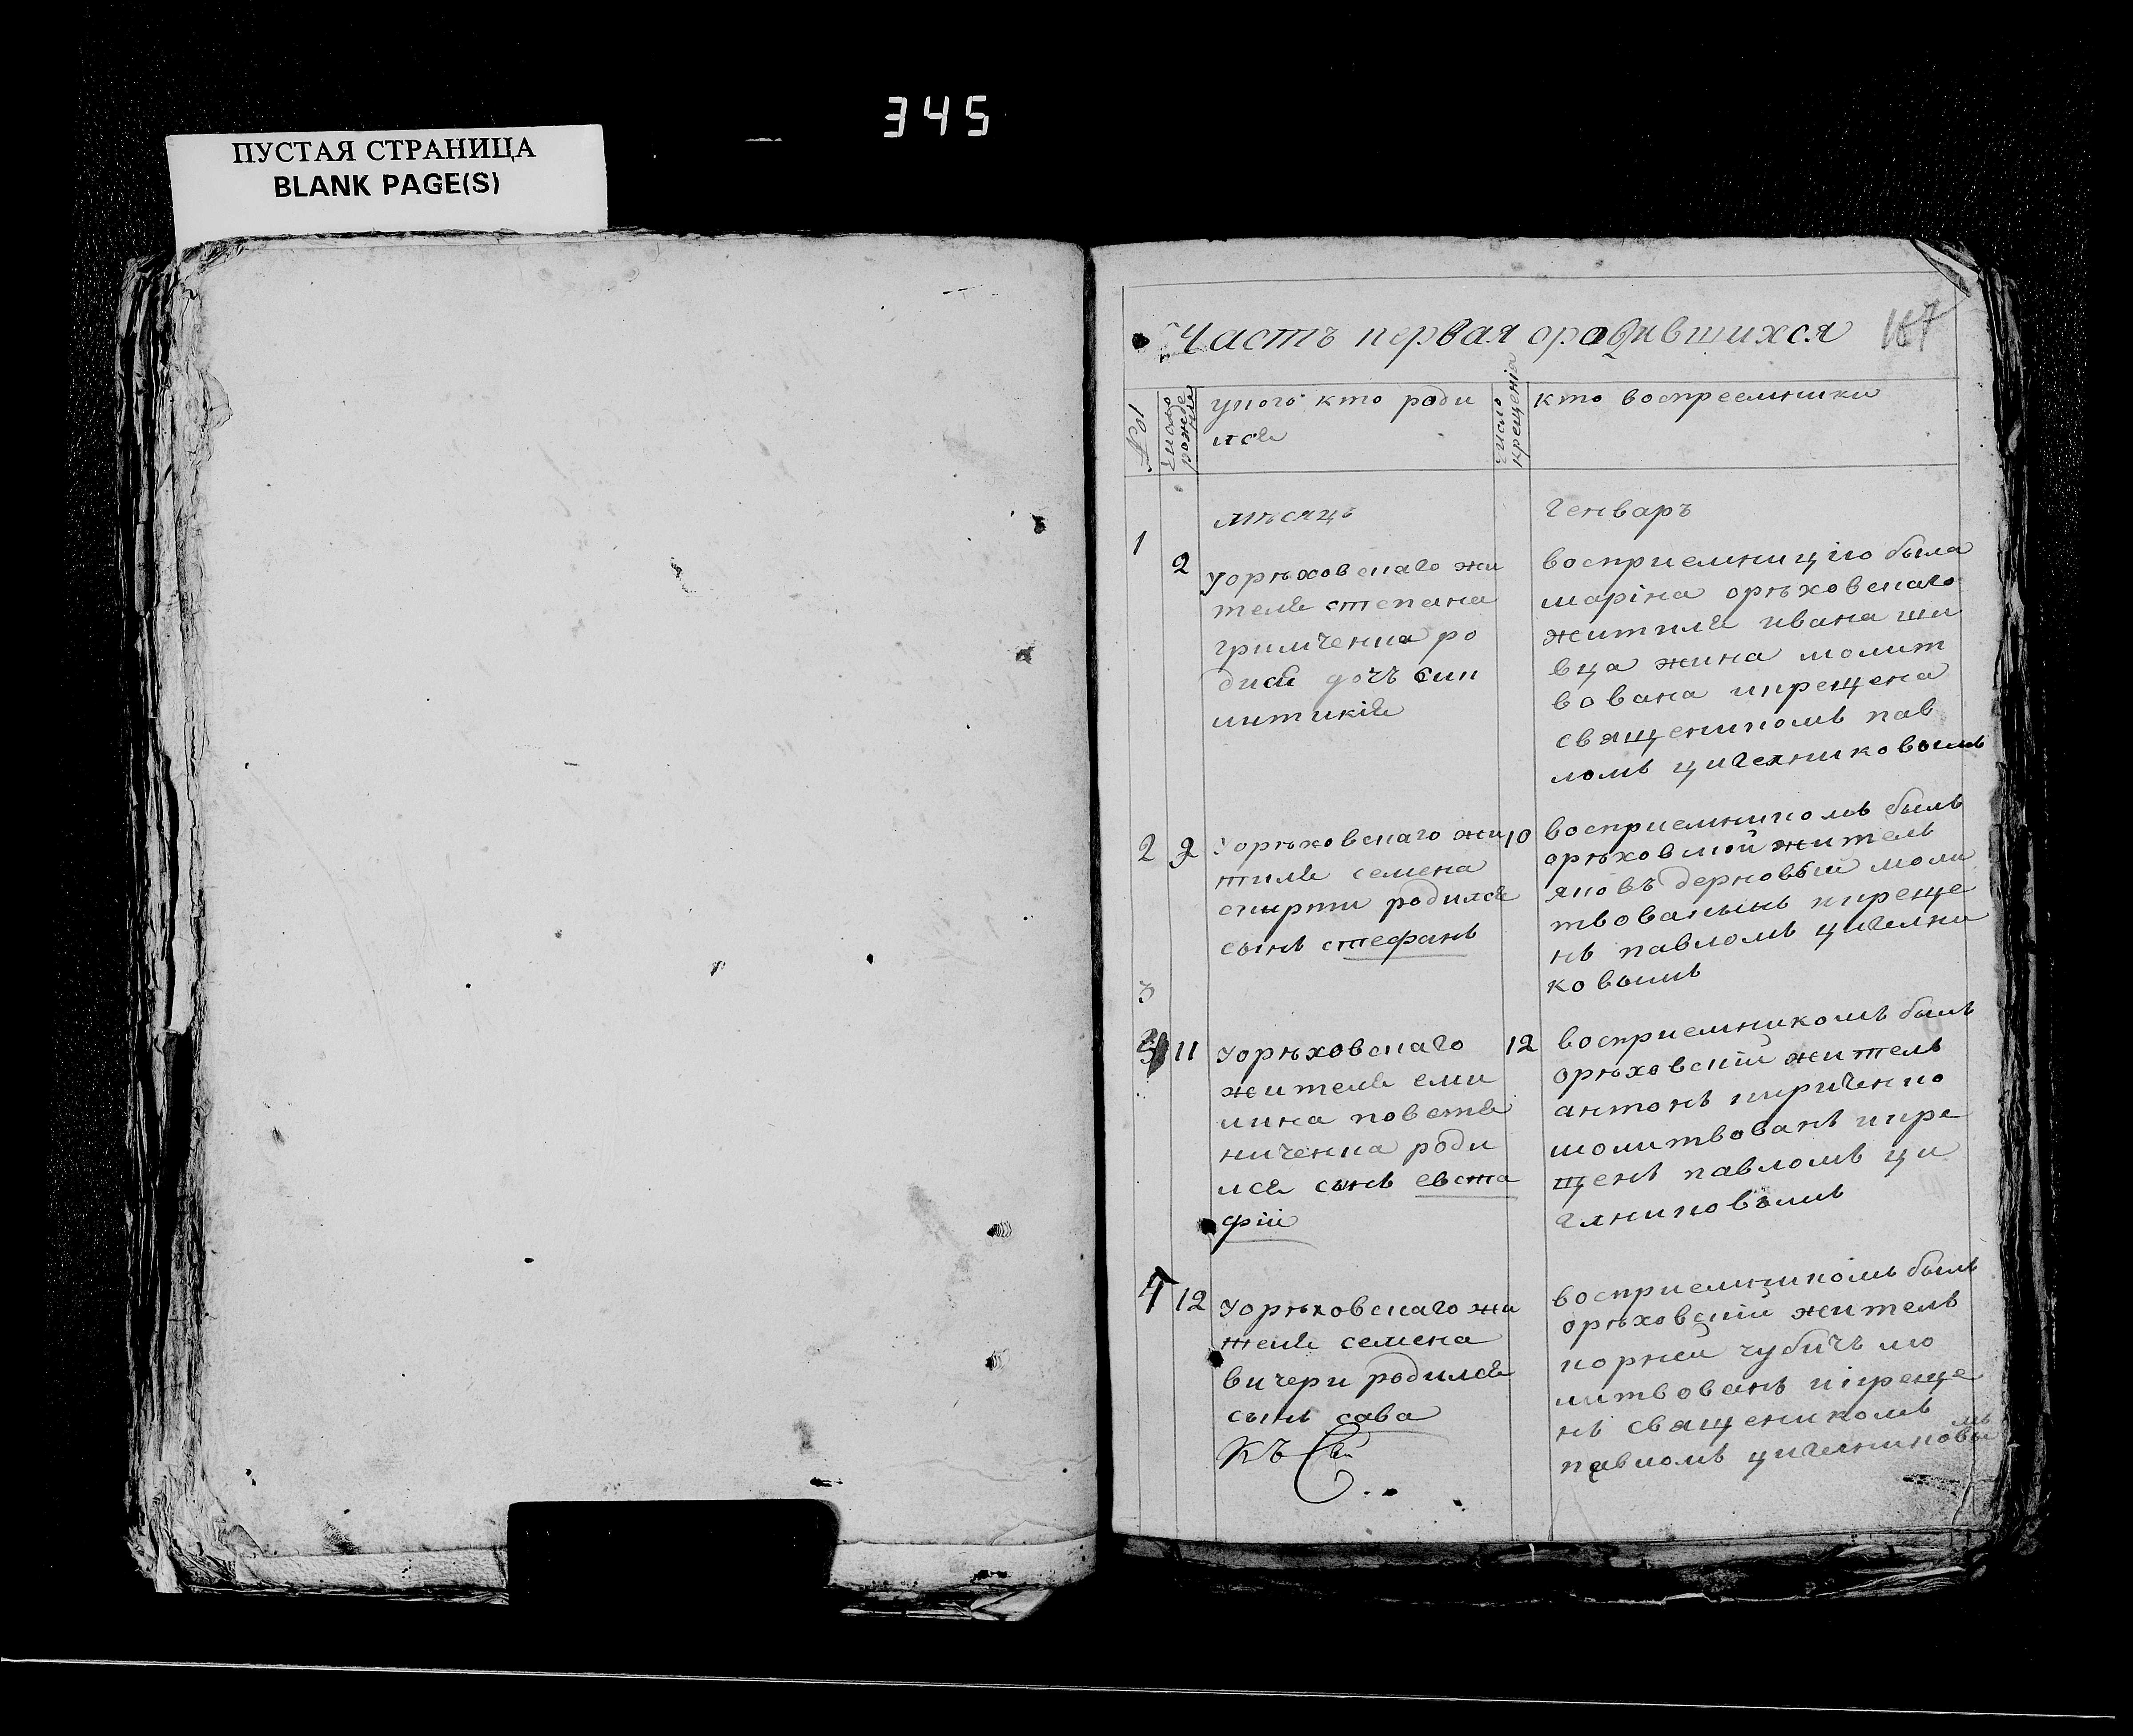 345
ПУСТАЯ СТРАНИЦА
BLANK PAGE(S)
Часть первая ородившихся 187
№
Число рожде ние
укого кто роди
лся
число крещенія
кто воспреемники
мѣсяцъ
Генваръ
1
2
уорѣховскаго жи
теля степана
гримченка ро
дися дочъ син
литикія
восприемницію была
маріна орѣховскаго
житиля ивана ши
вца жина молит
вована икрещена
священикомъ пав
ломъ цигелниковымъ
2
9
уорѣховскаго жи
тиля семена
скирти родился
сынъ стефанъ
10
восприемникомъ былъ
орѣховской житель
яковъ дерновый моли
твованынъ икреще
нъ павломъ цигелни
ковымъ
3
11
уорѣховскаго
жителя еми
лина повстя
ниченка роди
лся сынъ евста
фій
12
восприемникомъ былъ
орѣховскій житель
антонъ кириченко
молитвованъ икре
щенъ павломъ ци
глниковымъ
4
12
уорѣховскаго жи
теля семена
вичери родился
сынъ сава
КЪ
восприемникомъ былъ
орѣховскій житель
корней чубичъ мо
литвованъ ікреще
нъ священикомъ
павломъ цигелниковы
мъ